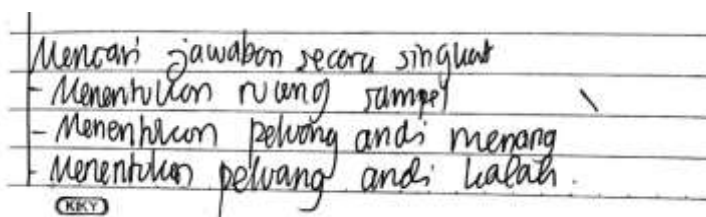 Mencari jawaban secara singkat
- Menentukan ruang sampel
- Menentukan peluang andi menang
- Menentukan peluang andi kalah.
KIKY